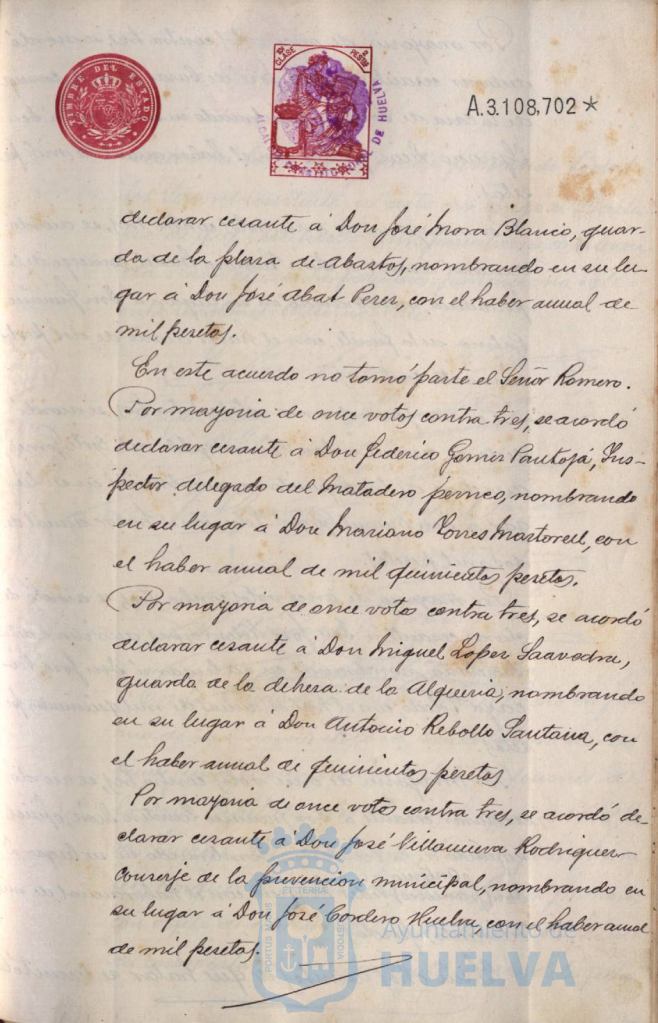 TIMBRE DEL ESTADO
10ª CLASE 2 PESETAS
DE HUELVA
A.3.108,702 *
declarar cesante á Don José Mora Blanco, guar-
da de la plaza de Abastos, nombrando en su lu-
gar á Don José Abat Perez, con el haber anual de
mil pesetas.
En este acuerdo no tomó parte el Señor Romero.
Por mayoria de once votos contra tres, se acordó
declarar cesante á Don Federico Gomez Pantoja, Ins-
pector delegado del Matadero público, nombrando
en su lugar á Don Mariano Torres Martorell, con
el haber anual de mil quinientas pesetas.
Por mayoria de once votos contra tres, se acordó
declarar cesante á Don Miguel Lopez Saavedra,
guarda de la dehesa de la Alqueria, nombrando
en su lugar á Don Antonio Rebollo Santana, con
el haber anual de quinientas pesetas
Por mayoria de once votos contra tres, se acordó de-
clarar cesante á Don José Villanueva Rodriguez
conserje de la prevencion municipal, nombrando en
su lugar á Don José Cordero Huelva, con el haber anual
de mil pesetas.
PORTUS MARIS ET TERRAE CUSTODIA
Ayuntamiento de
HUELVA